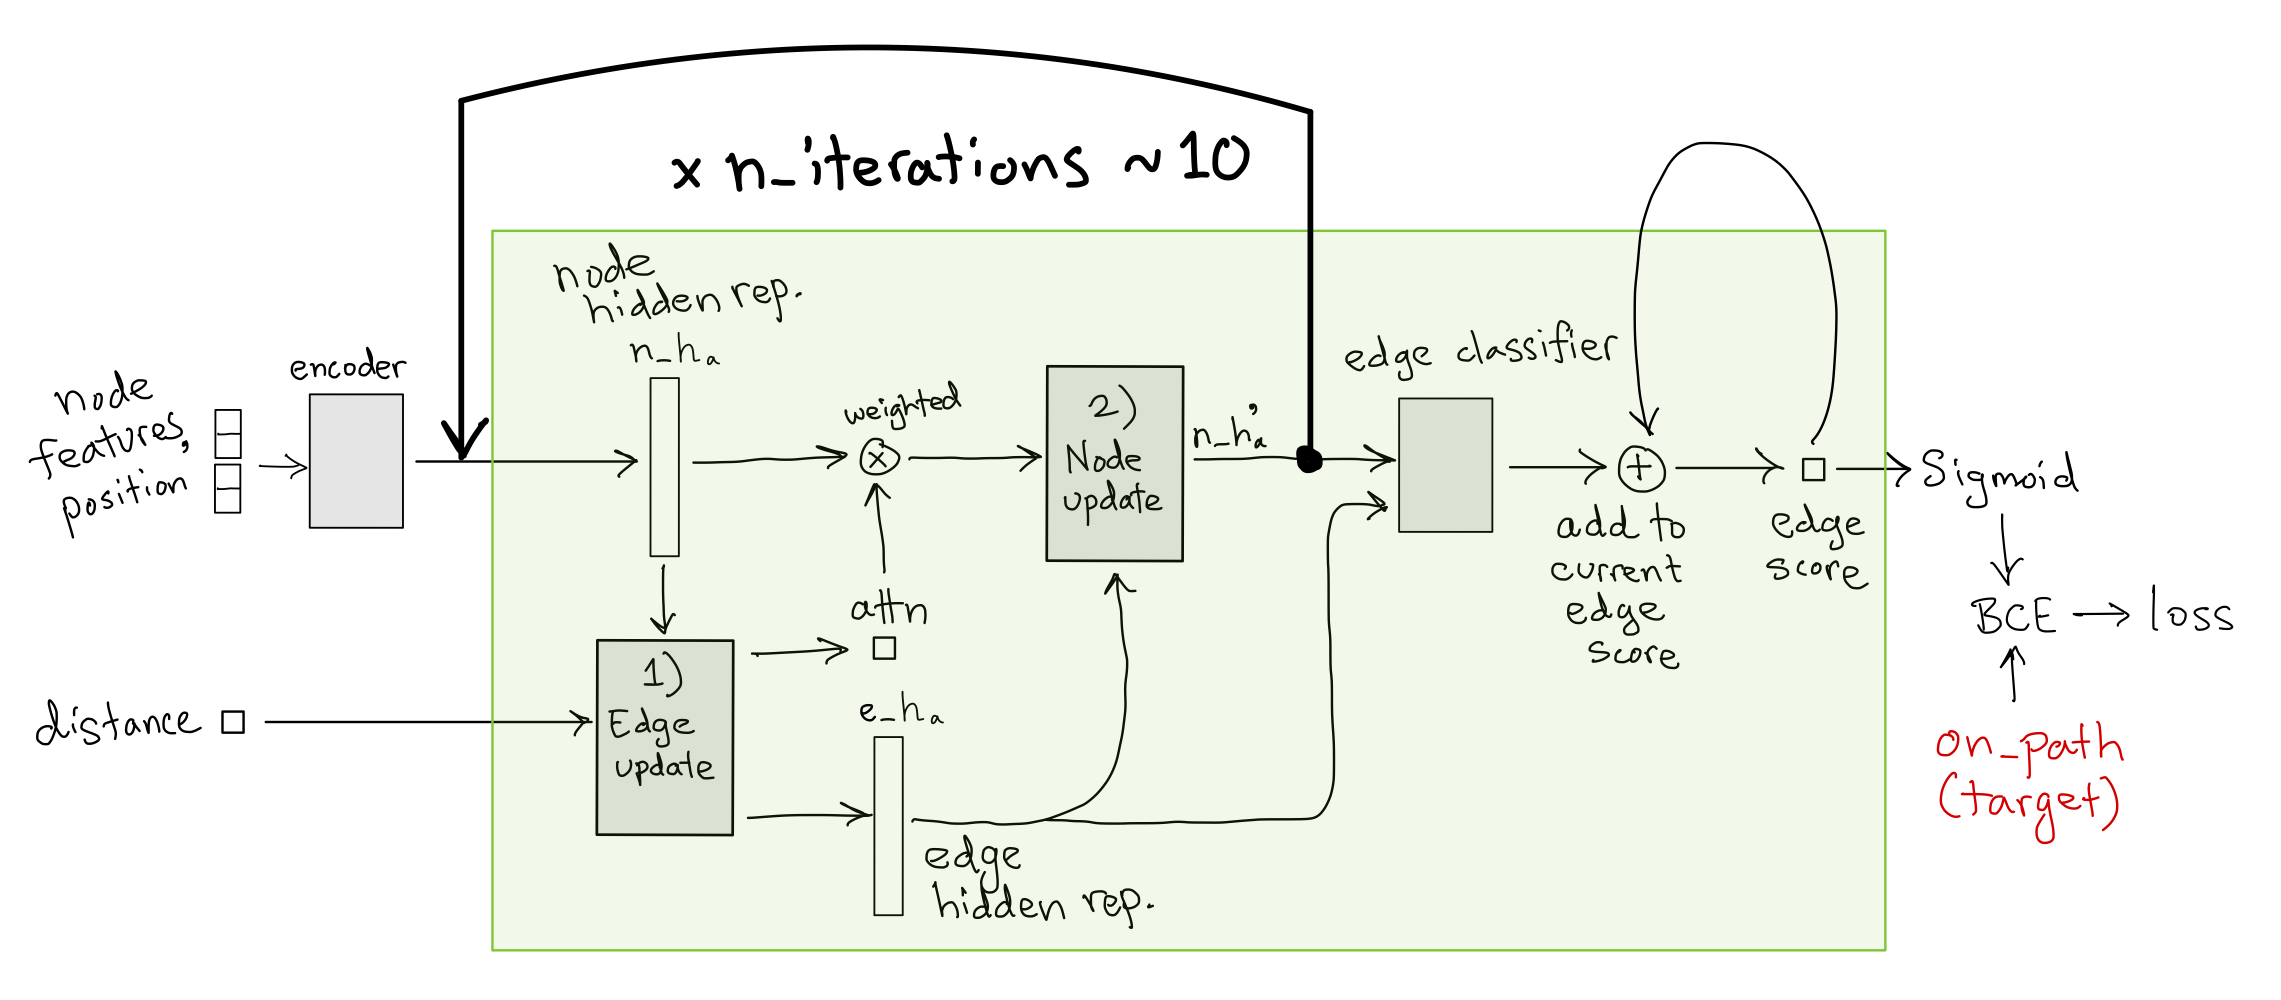 x n_iterations ~10
node
hidden rep.
n_hₐ
encoder
node
features,
position
weighted
2)
Node
update
n_hₐ'
edge classifier
add to
current
edge
score
edge
score
Sigmoid
BCE
loss
on_path
(target)
attn
distance
1)
Edge
update
e_hₐ
edge
hidden rep.